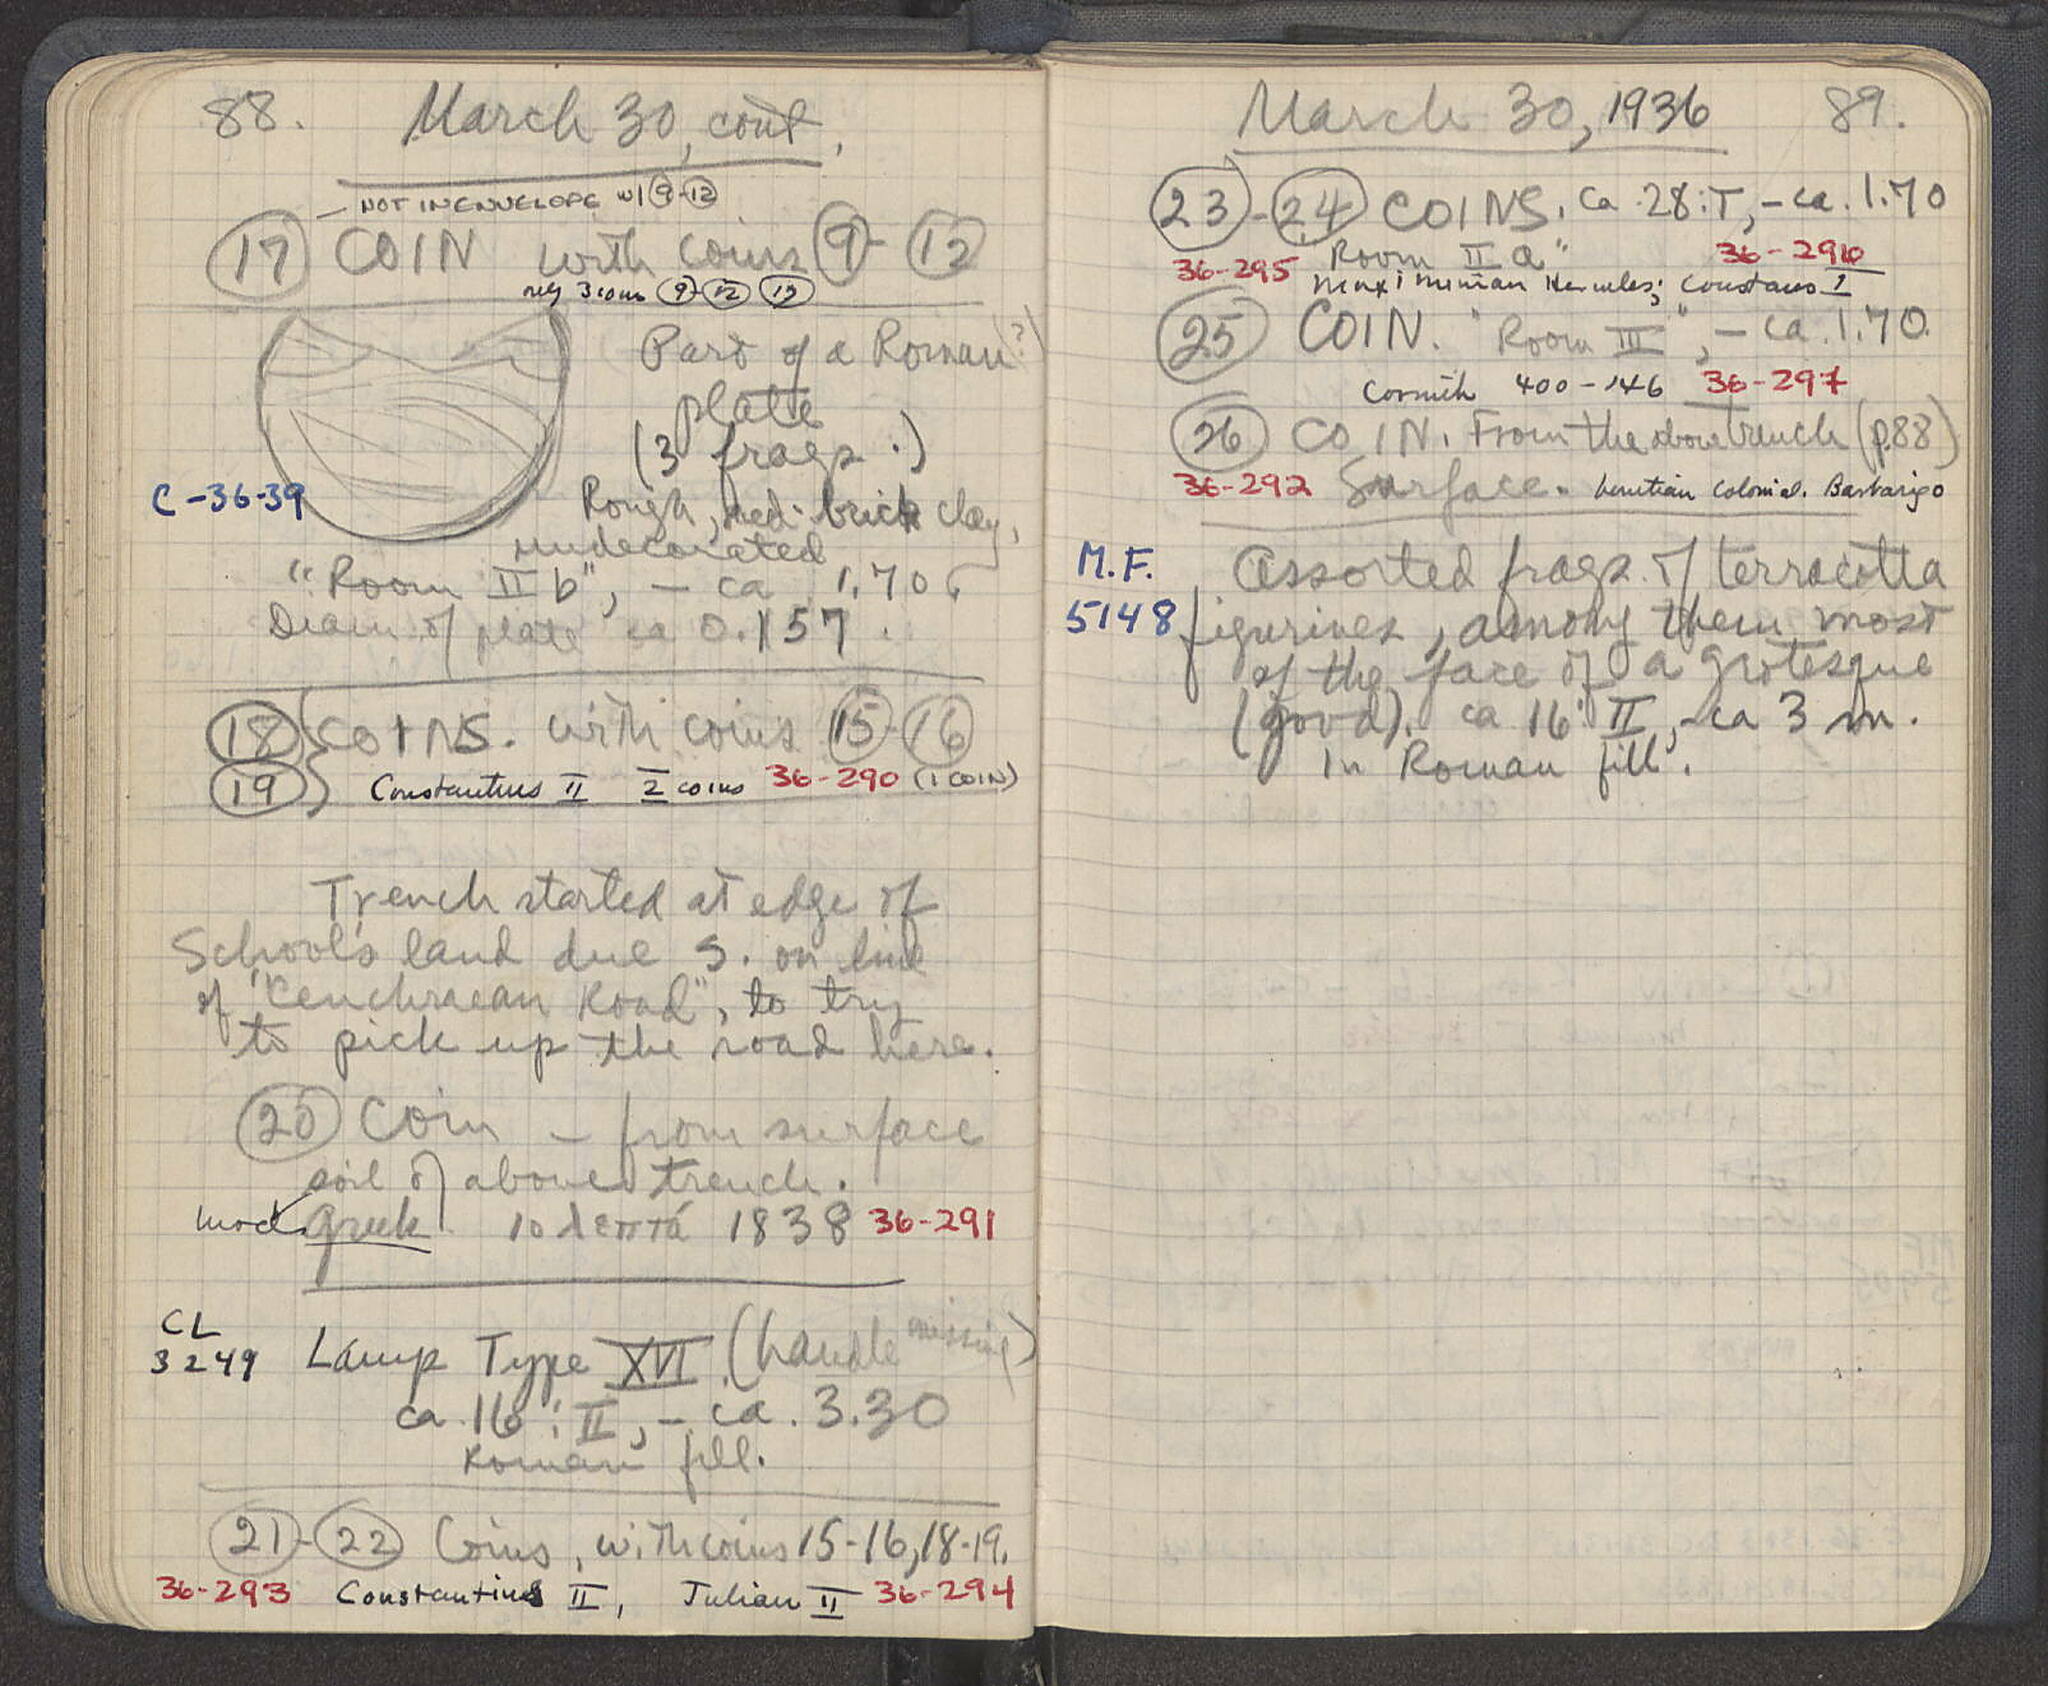 88.
March 30, cont.
NOT IN ENVELOPE w/ 9-12
17 COIN with coins 9-12
only 3 coins 9-12 17
Part of a Roman (?)
plate
(3 frags.)
C-36-39
Rough, red-brick clay,
undecorated
"Room II b", - ca 1.70
Diam of plate ca 0.157.
18 COINS. with coins 15-16
19 Constantius II 2 coins 36-290 (1 COIN)
Trench started at edge of
School's land due S. on line
of "Cenchraean Road", to try
to pick up the road here.
20 Coin - from surface
soil of above trench.
mod. Greek 10 λεπτά 1838 36-291
CL
3249
Lamp Type XVI (handle missing)
ca. 16:II, - ca. 3.30
Roman fill.
21-22 Coins, with coins 15-16, 18-19.
36-293 Constantius II, Julian II 36-294
March 30, 1936 89.
23-24 COINS. ca 28:T, - ca. 1.70
"Room II a"
36-295 36-296
Maximian Hercules; Constans I
25 COIN. "Room III", - ca. 1.70.
Corinth 400-146 36-297
26 COIN. From the above trench (p.88)
36-292 Surface. Venetian Colonial. Barbarigo
M.F.
5148
Assorted frags. of terracotta
figurines, among them most
of the face of a grotesque
(good). ca 16:II, - ca 3 m.
In Roman fill.